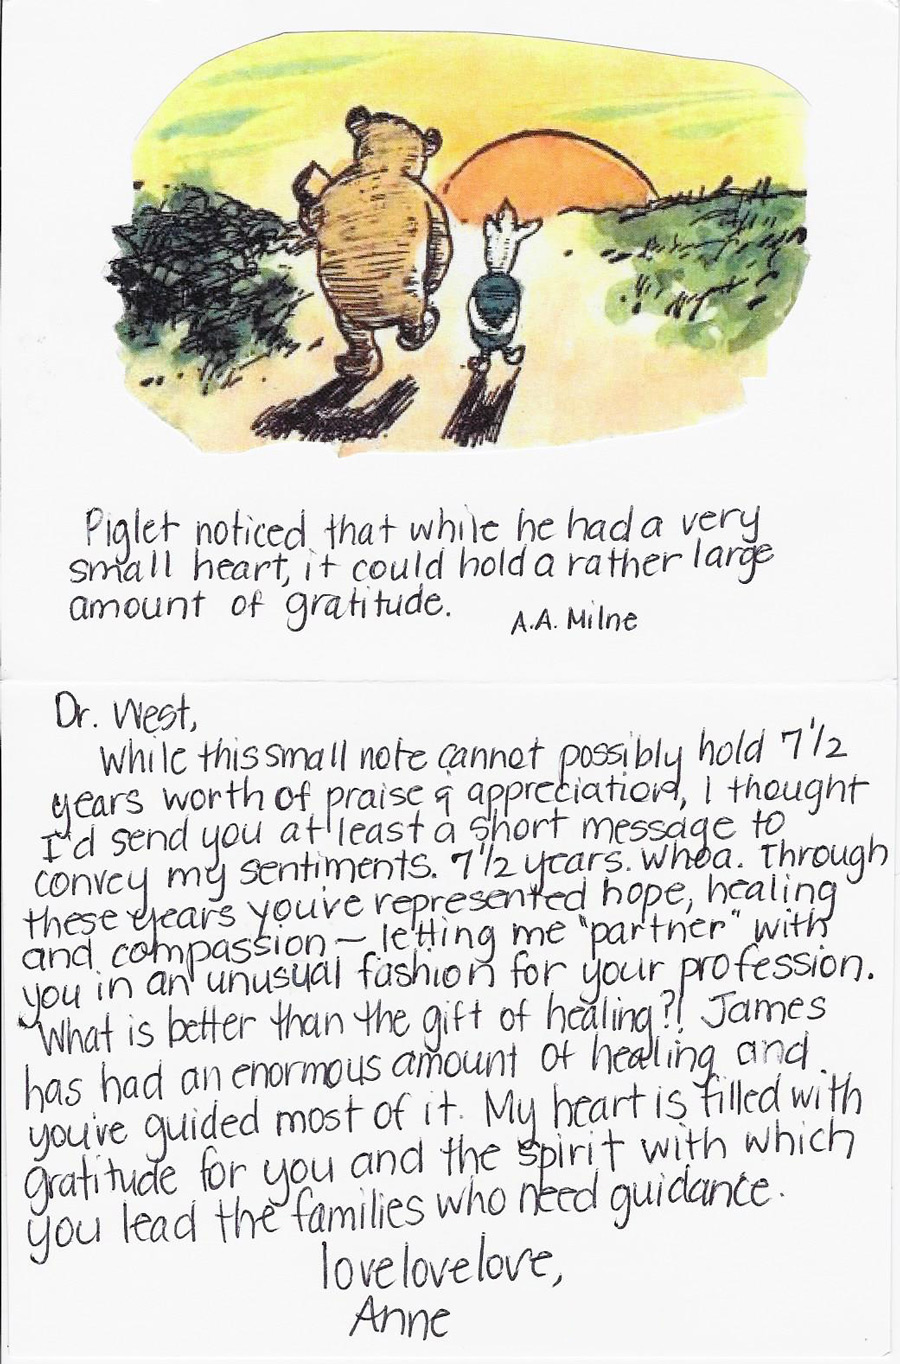 Piglet noticed that while he had a very
small heart, it could hold a rather large
amount of gratitude.
A.A. Milne
Dr. West,
While this small note cannot possibly hold 7 1/2
years worth of praise & appreciation, I thought
I'd send you at least a short message to
convey my sentiments. 7 1/2 years. Whoa. Through
these years you've represented hope, healing
and compassion — letting me "partner" with
you in an unusual fashion for your profession.
What is better than the gift of healing?! James
has had an enormous amount of healing and
you've guided most of it. My heart is filled with
gratitude for you and the spirit with which
you lead the families who need guidance.
lovelovelove,
Anne